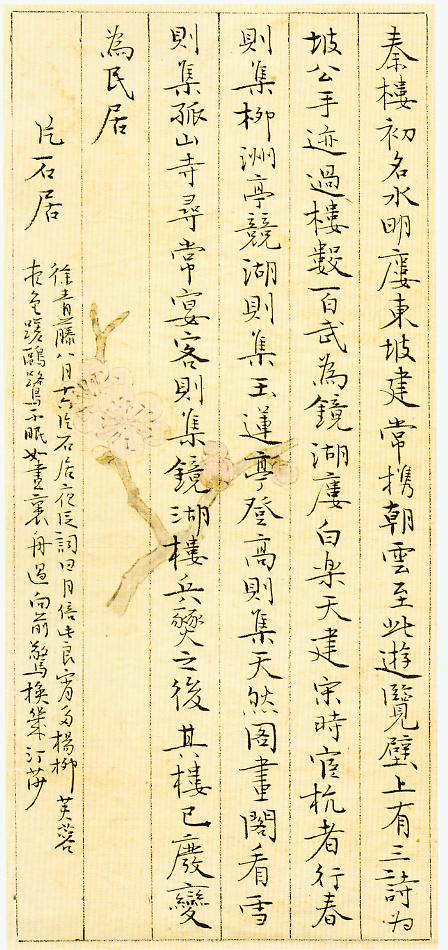 秦樓初名水明廔東坡建常携朝雲至此遊覽壁上有三詩为
坡公手迹過樓數百武為鏡湖廔白楽天建宋時宦杭者行春
則集柳洲亭競湖則集玉蓮亭登高則集天然图畫閣看雪
則集孤山寺尋常宴客則集鏡湖樓兵燹之後其樓已廢變
為民居
片石居
徐青藤八月十六片石居夜泛詞曰月倍此良宵多楊柳芙蓉
夜色蹉鷗鷺不眠如畫裏舟過向前驚換幾汀莎